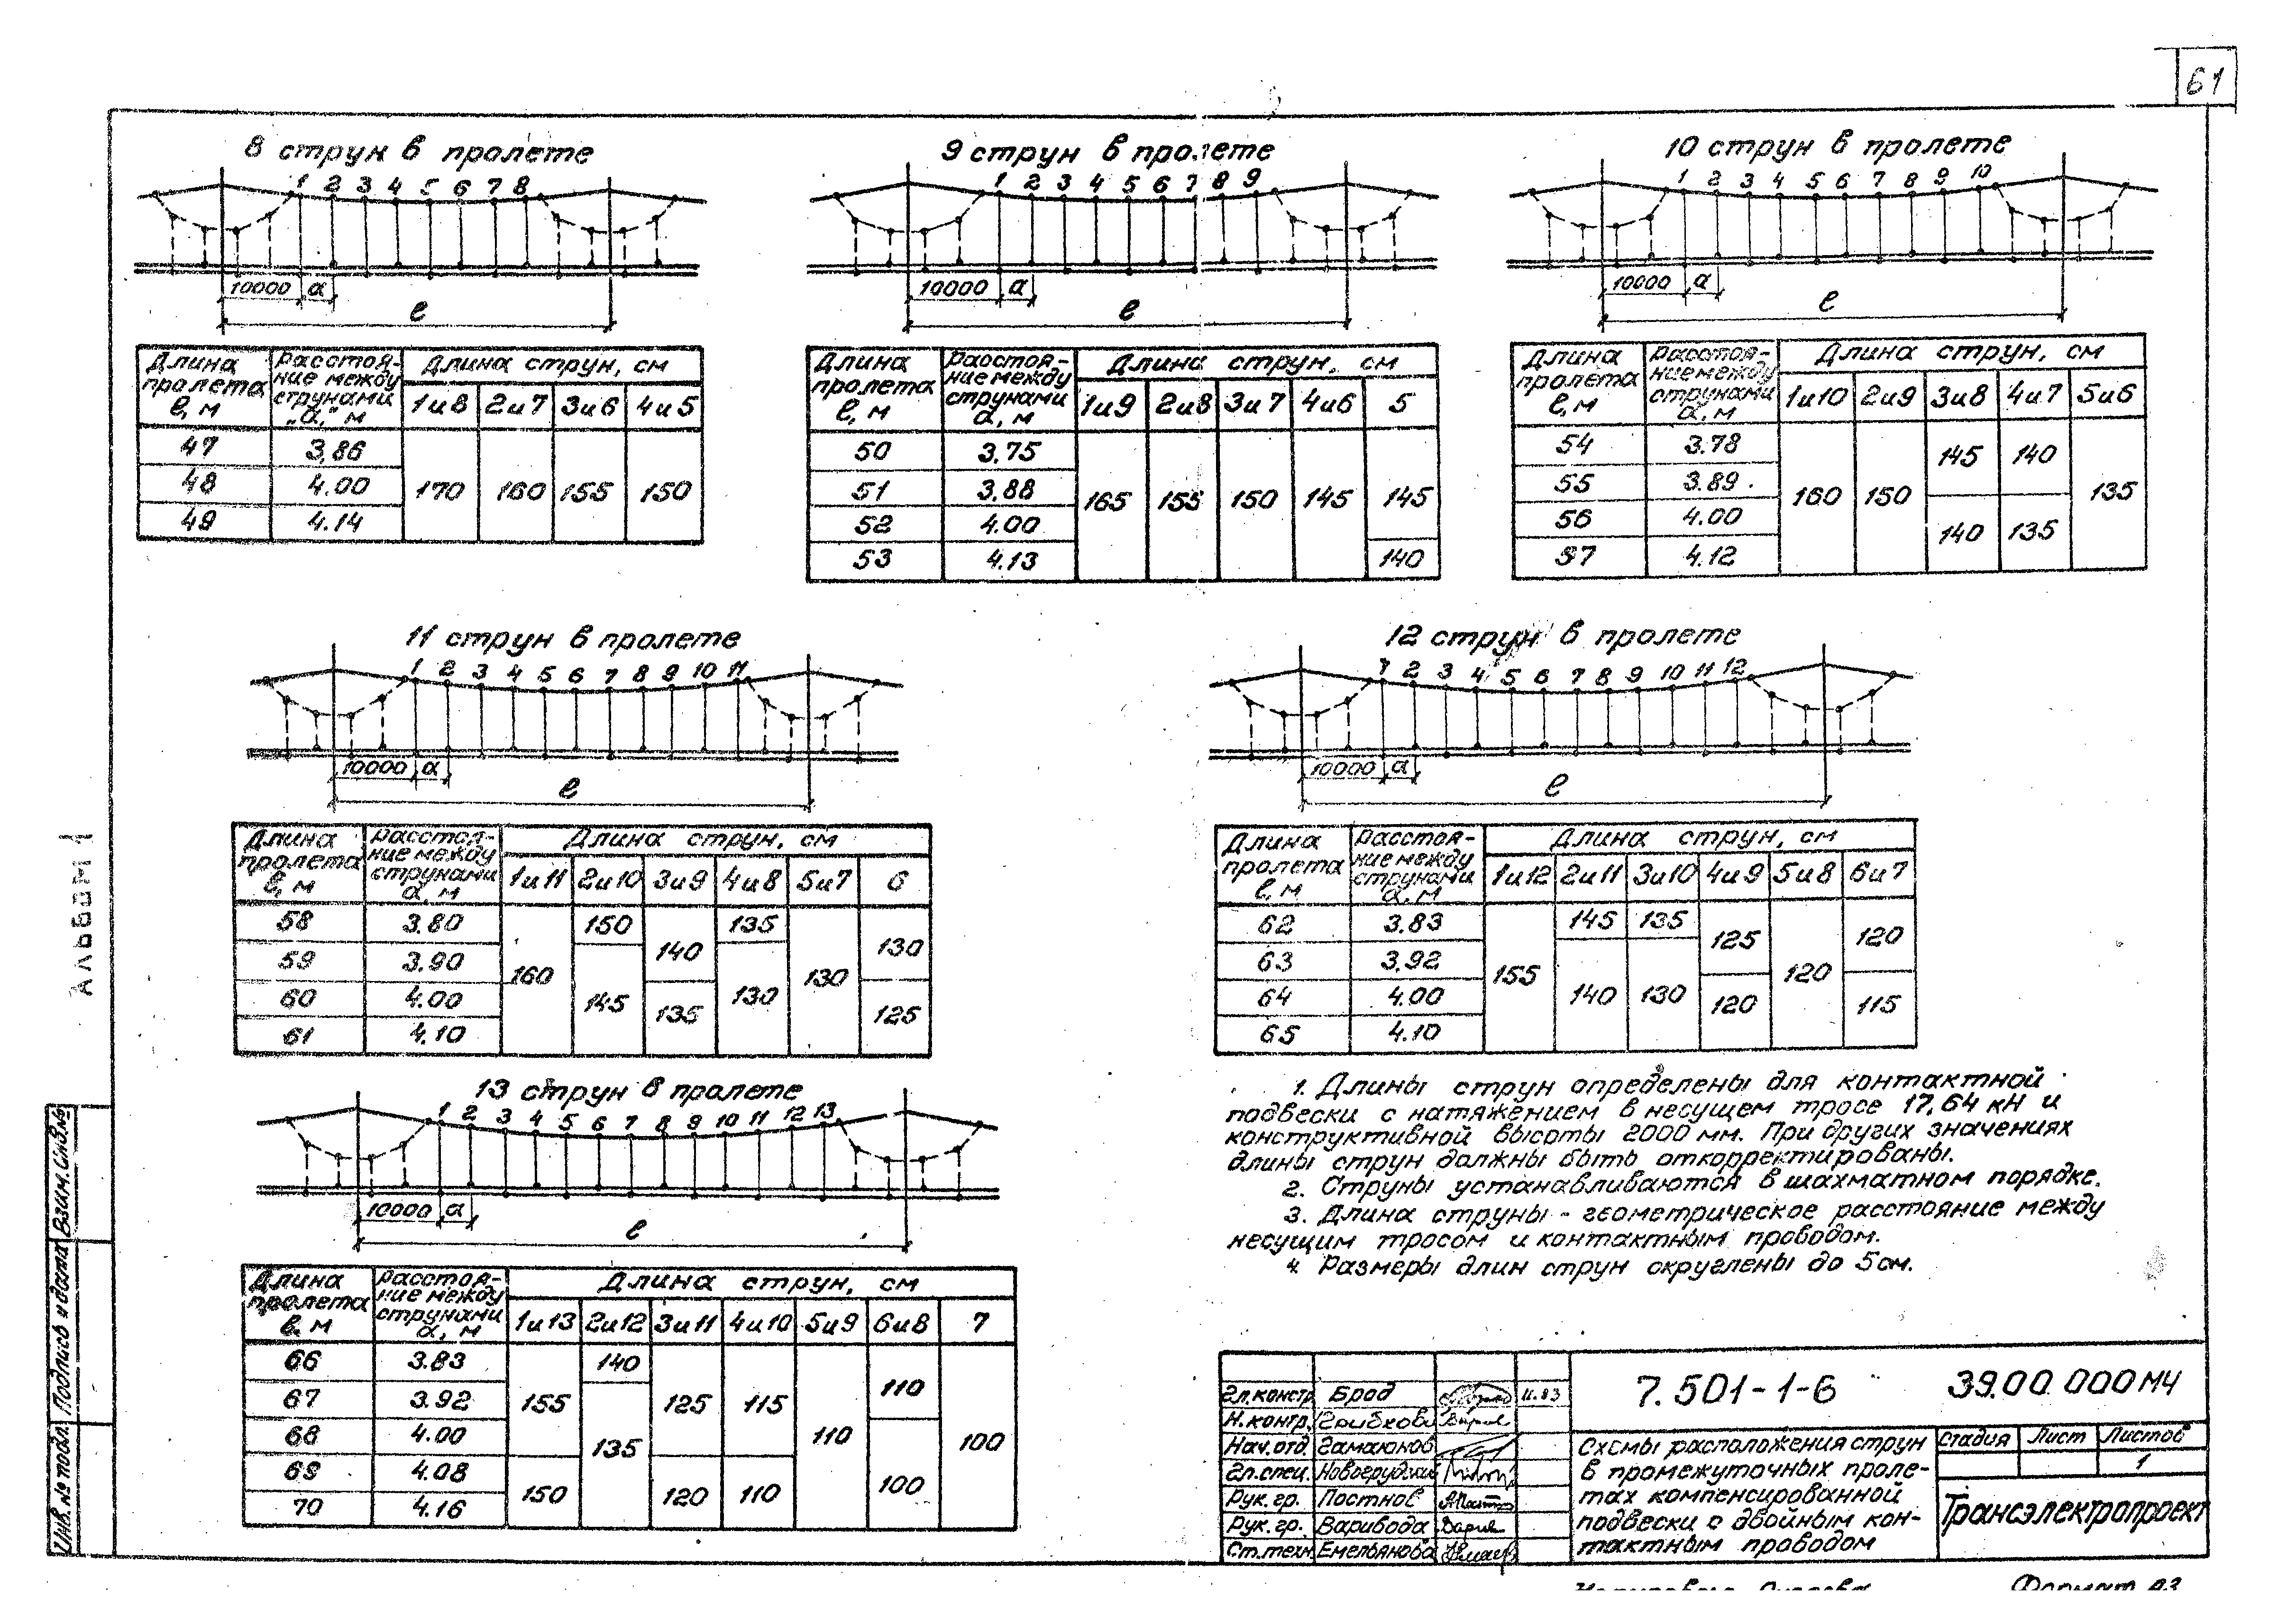 61
8 струн в пролете
1 2 3 4 5 6 7 8
10000 а
ℓ
Длина пролета ℓ, м
Расстоя-ние между струнами „а," м
Длина струн, см
1и8 2и7 3и6 4и5
47 3,86
48 4.00 170 160 155 150
49 4.14
9 струн в пролете
1 2 3 4 5 6 7 8 9
10000 а
ℓ
Длина пролета ℓ, м
Расстоя-ние между струнами а, м
Длина струн, см
1и9 2и8 3и7 4и6 5
50 3.75
51 3.88
165 155 150 145 145
52 4.00
53 4.13 140
10 струн в пролете
1 2 3 4 5 6 7 8 9 10
10000 а
ℓ
Длина пролета ℓ, м
Расстоя-ние между струнами а, м
Длина струн, см
1и10 2и9 3и8 4и7 5и6
54 3.78
145 140
55 3.89
160 150 135
56 4.00
140 135
57 4.12
11 струн в пролете
1 2 3 4 5 6 7 8 9 10 11
10000 а
ℓ
Длина пролета ℓ, м
Расстоя-ние между струнами а, м
Длина струн, см
1и11 2и10 3и9 4и8 5и7 6
58 3.80 150 135
140 130
59 3.90
160 130
60 4.00 145 130
135 125
61 4.10
12 струн в пролете
1 2 3 4 5 6 7 8 9 10 11 12
10000 а
ℓ
Длина пролета ℓ, м
Расстоя-ние между струнами а, м
Длина струн, см
1и12 2и11 3и10 4и9 5и8 6и7
62 3.83 145 135
125 120
63 3.92
155 120
64 4.00 140 130
120 115
65 4.10
13 струн в пролете
1 2 3 4 5 6 7 8 9 10 11 12 13
10000 а
ℓ
Длина пролета ℓ, м
Расстоя-ние между струнами а, м
Длина струн, см
1и13 2и12 3и11 4и10 5и9 6и8 7
66 3.83 140
110
67 3.92 155 125 115
68 4.00 135 110 100
69 4.08
150 120 110 100
70 4.16
1. Длины струн определены для контактной
подвески с натяжением в несущем тросе 17,64 кН и
конструктивной высоты 2000 мм. При других значениях
длины струн должны быть откорректированы.
2. Струны устанавливаются в шахматном порядке.
3. Длина струны - геометрическое расстояние между
несущим тросом и контактным проводом.
4. Размеры длин струн округлены до 5см.
Гл.констр. Брод 11.83
Н.контр.
Нач.отд. Гамаюнов
Гл.спец. Новогрудский
Рук.гр. Постнов
Рук.гр. Варивода
Ст.техн. Емельянова
7.501-1-6 39.00.000МЧ
Схемы расположения струн
в промежуточных проле-
тах компенсированной
подвески с двойным кон-
тактным проводом
Стадия Лист Листов
1
Трансэлектропроект
Формат А3
Альбом 1
Инв. № подл. Подпись и дата Взам. инв.№